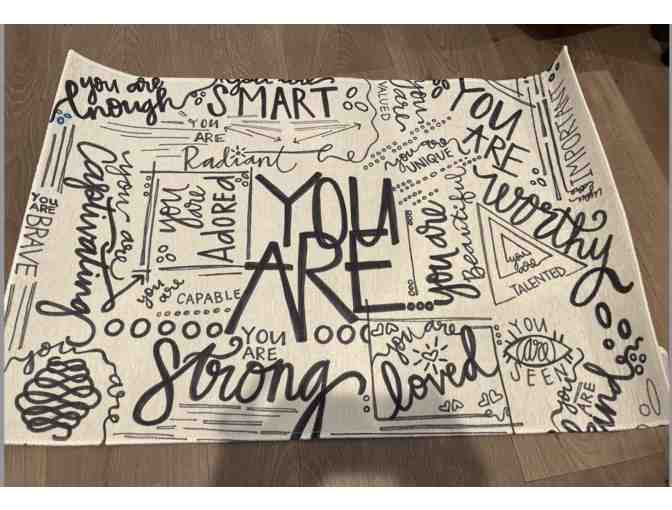 you are
enough
you are
SMART
YOU
ARE
Radiant
VALUED
you are
YOU
ARE
worthy
you are
IMPORTANT
you are
UNIQUE
YOU
ARE
BRAVE
you are
Captivating
you
are
Adored
YOU
ARE
you are
Beautiful
you
are
TALENTED
you
are
CAPABLE
YOU
ARE
Strong
you are
loved
YOU
are
SEEN
you
are
you
ARE
kind